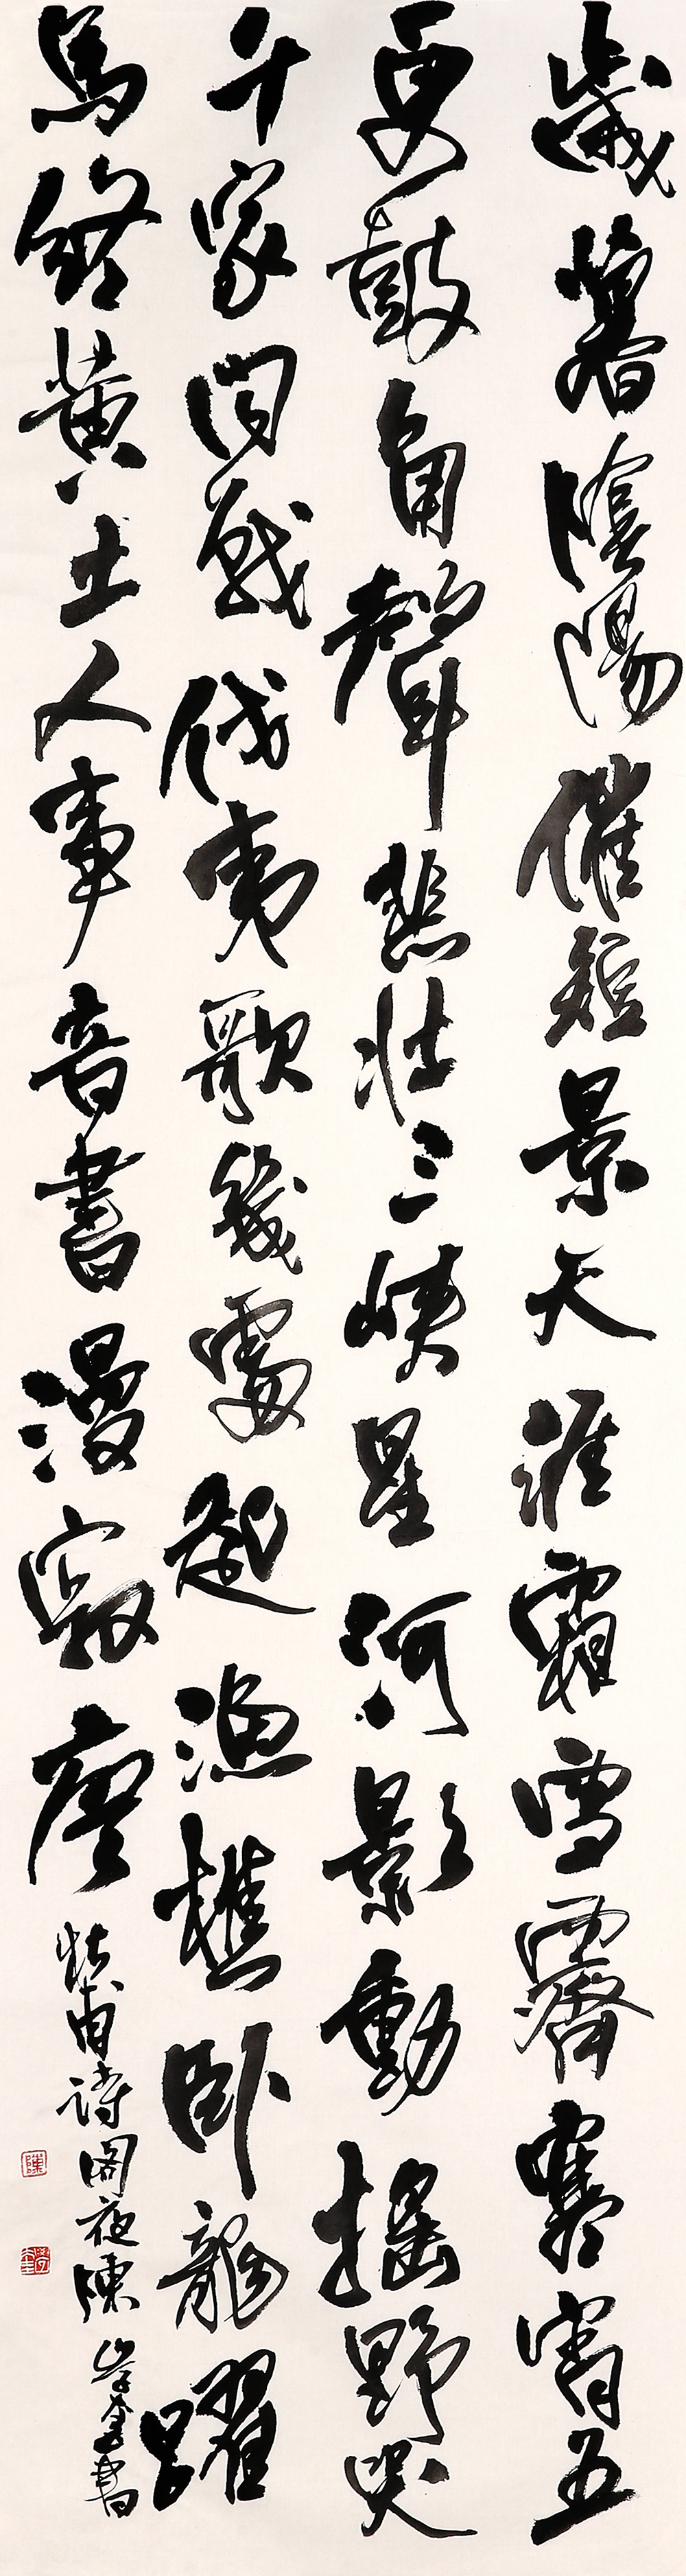 歲暮陰陽催短景天涯霜雪霽寒宵五
更鼓角聲悲壯三峽星河影動搖野哭
千家聞戰伐夷歌幾處起漁樵臥龍躍
馬終黃土人事音書漫寂寥
杜甫詩閣夜陳書
陳